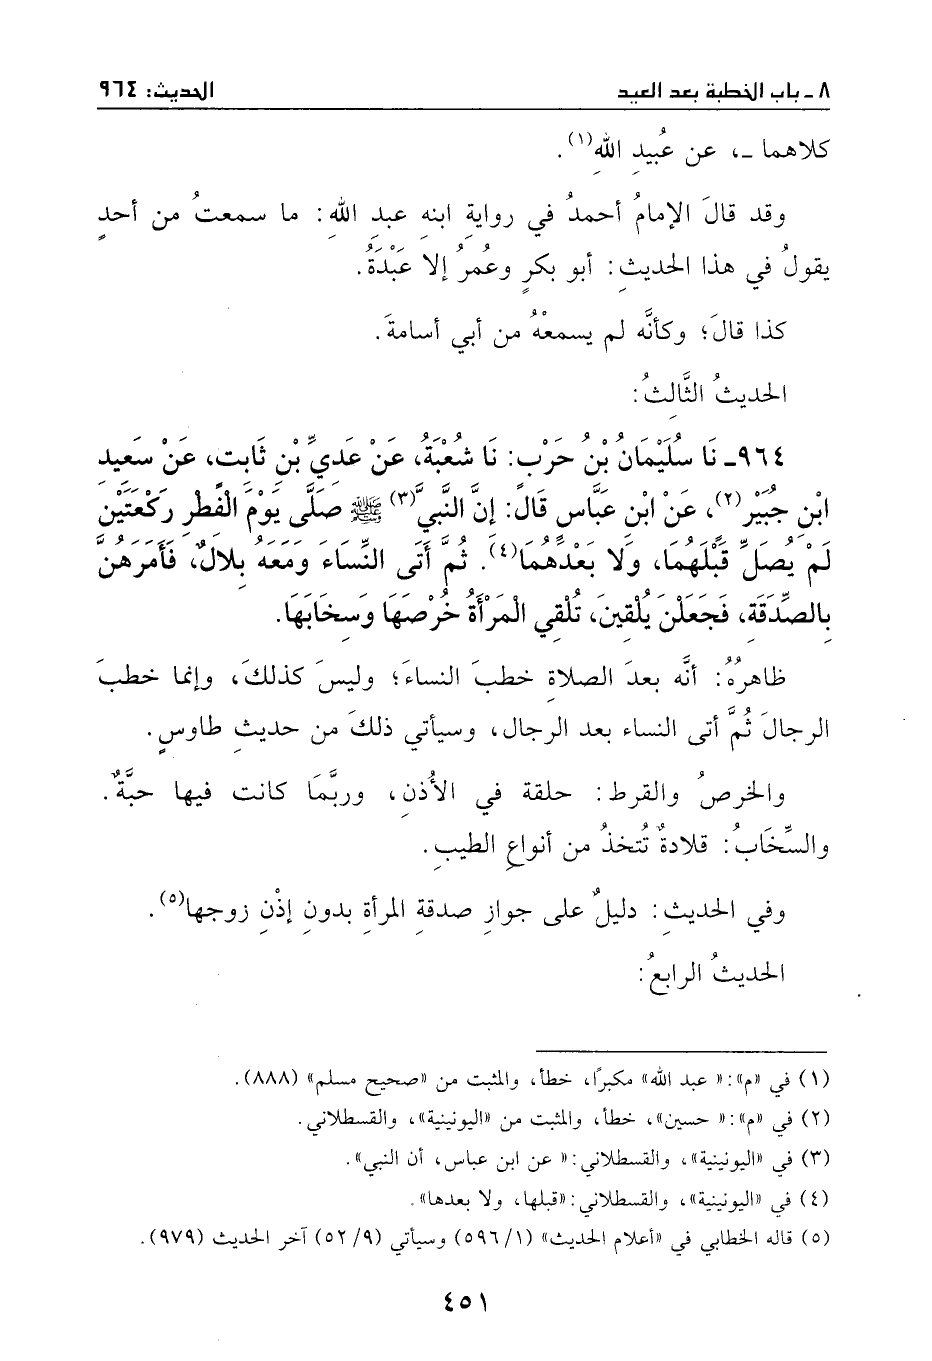 ٨ ـ باب الخطبة بعد العيد
الحديث: ٩٦٤
كلاهما ـ، عن عُبيدِ اللهِ(١).
وقد قالَ الإمامُ أحمدُ في روايةِ ابنهِ عبدِ اللهِ: ما سمعتُ من أحدٍ
يقولُ في هذا الحديثِ: أبو بكرٍ وعُمرُ إلا عَبْدَةُ.
كذا قالَ؛ وكأنَّه لم يسمعْهُ من أبي أسامةَ.
الحديثُ الثَّالثُ:
٩٦٤ـ نَا سُلَيْمَانُ بْنُ حَرْبٍ: نَا شُعْبَةُ، عَنْ عَدِيِّ بْنِ ثَابِتٍ، عَنْ سَعِيدِ
ابْنِ جُبَيْرٍ(٢)، عَنْ ابْنِ عَبَّاسٍ قَالَ: إِنَّ النَّبِيَّ(٣) ﷺ صَلَّى يَوْمَ الْفِطْرِ رَكْعَتَيْنِ
لَمْ يُصَلِّ قَبْلَهُمَا، وَلَا بَعْدَهُمَا(٤). ثُمَّ أَتَى النِّسَاءَ وَمَعَهُ بِلَالٌ، فَأَمَرَهُنَّ
بِالصَّدَقَةِ، فَجَعَلْنَ يُلْقِينَ، تُلْقِي الْمَرْأَةُ خُرْصَهَا وَسِخَابَهَا.
ظاهرُهُ: أنَّه بعدَ الصلاةِ خطبَ النساءَ؛ وليسَ كذلكَ، وإنما خطبَ
الرجالَ ثُمَّ أتى النساء بعد الرجال، وسيأتي ذلكَ من حديثِ طاوسٍ.
والخرصُ والقرط: حلقة في الأُذنِ، وربَّمَا كانت فيها حبَّةٌ.
والسِّخَابُ: قلادةٌ تُتخذُ من أنواعِ الطيبِ.
وفي الحديثِ: دليلٌ على جوازِ صدقةِ المرأةِ بدونِ إذْنِ زوجِها(٥).
الحديثُ الرابعُ:
(١) في «م»: «عبد الله» مكبرًا، خطأ، والمثبت من «صحيح مسلم» (٨٨٨).
(٢) في «م»: «حسين»، خطأ، والمثبت من «اليونينية»، والقسطلاني.
(٣) في «اليونينية»، والقسطلاني: «عن ابن عباس، أن النبي».
(٤) في «اليونينية»، والقسطلاني: «قبلها، ولا بعدها».
(٥) قاله الخطابي في «أعلام الحديث» (١/ ٥٩٦) وسيأتي (٩/ ٥٢) آخر الحديث (٩٧٩).
٤٥١